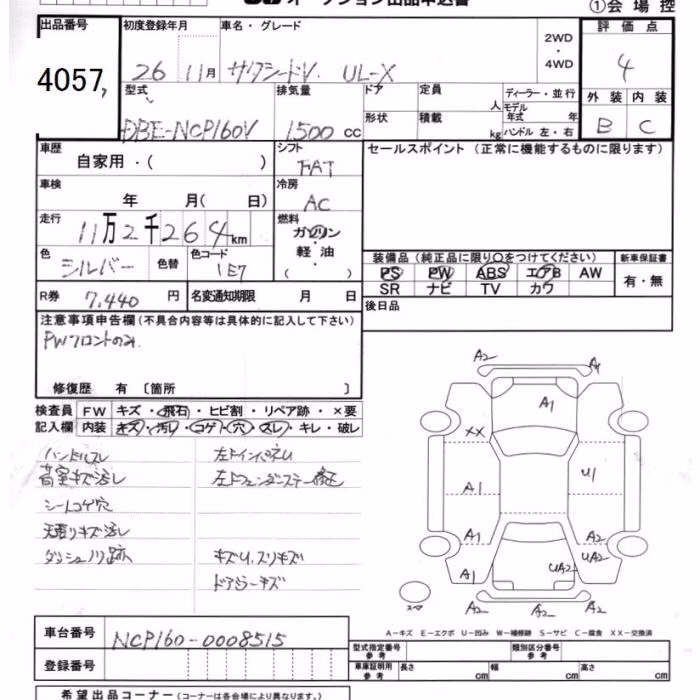 オークション出品申込書
①会場控
出品番号 初度登録年月 車名・グレード 評価点
4057 26 11月 サクシードV. UL-X 2WD・4WD 4
型式 排気量 ドア 定員 人 ディーラー・並行 外装 内装
DBE-NCP160V 1500 cc 形状 積載 kg モデル年式 年 ハンドル 左・右 B C
車歴 自家用・( ) シフト FAT セールスポイント (正常に機能するものに限ります)
車検 年 月( 日) 冷房 AC
走行 11万2千264km 燃料 ガソリン・軽油・( )
色 シルバー 色替 色コード 1E7
装備品 (純正品に限り○をつけてください) 新車保証書
PS PW ABS エアB AW 有・無
SR ナビ TV カワ
R券 7,440 円 名変通知期限 月 日 後日品
注意事項申告欄 (不具合内容等は具体的に記入して下さい)
PWフロントのみ.
修復歴 有 〔箇所 〕
検査員 FW キズ・飛石・ヒビ割・リペア跡・×要
記入欄 内装 キズ・汚レ・コゲ・穴・スレ・キレ・破レ
ハンドルスレ
荷室キズ汚レ
シートコゲ穴
天張りキズ汚レ
ダッシュノリ跡
キズU.スリキズ
A2 A1
XX U1
A1
A1 A2
UA2
A1 UA2
スペア A2 A2 A2
A-キズ E-エクボ U-凹み W-補修跡 S-サビ C-腐食 XX-交換済
車台番号 NCP160-0008515
登録番号
型式指定番号 参考 類別区分番号 参考
車庫証明用 参考 長さ cm 幅 cm 高さ cm
希望出品コーナー (コーナーは各会場により異なります。)